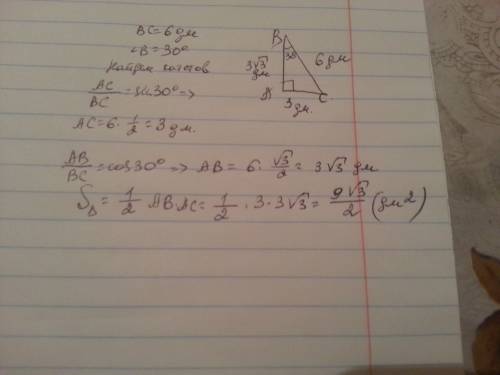 BC = 6 дм
∠B = 30°
Найдем катетов
AC/BC = sin 30° =>
AC = 6 · 1/2 = 3 дм.
B
30
3√3 дм
6 дм
A
3 дм.
C
AB/BC = cos 30° => AB = 6 · √3/2 = 3√3 дм
S△ = 1/2 AB AC = 1/2 · 3 · 3√3 = 9√3/2 (дм²)